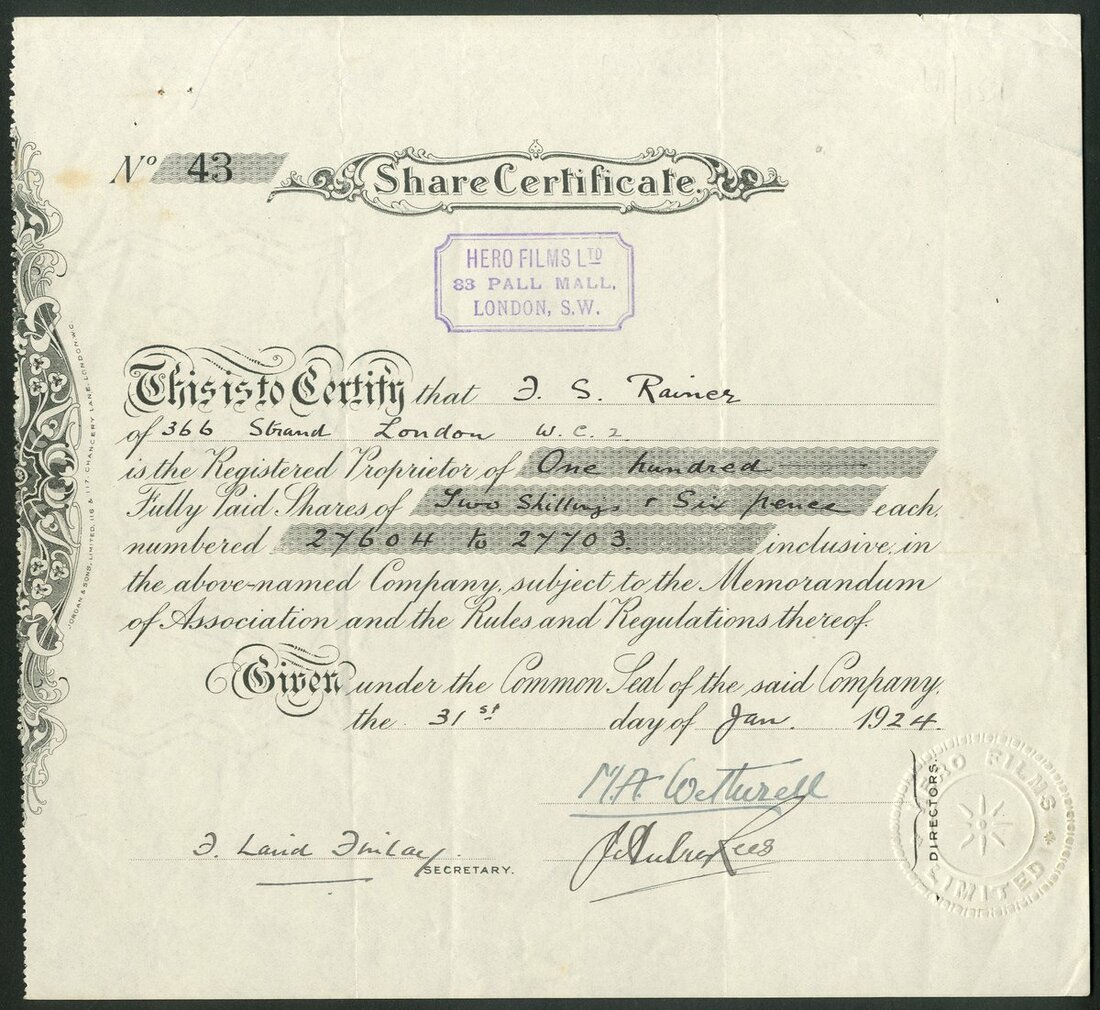 Nº 43
Share Certificate.
HERO FILMS LTD
83 PALL MALL,
LONDON, S.W.
This is to Certify that F. S. Rainer
of 366 Strand London W.C.2
is the Registered Proprietor of One hundred
Fully Paid Shares of Two Shillings & Six pence each,
numbered 27604 to 27703. inclusive, in
the above-named Company, subject to the Memorandum
of Association and the Rules and Regulations thereof.
Given under the Common Seal of the said Company,
the 31st day of Jan. 1924.
M.A. Wetherell
J. Aubrey Rees
DIRECTORS.
F. Laird Finlay
SECRETARY.
HERO FILMS LIMITED
JORDAN & SONS, LIMITED, 116 & 117, CHANCERY LANE, LONDON, W.C.